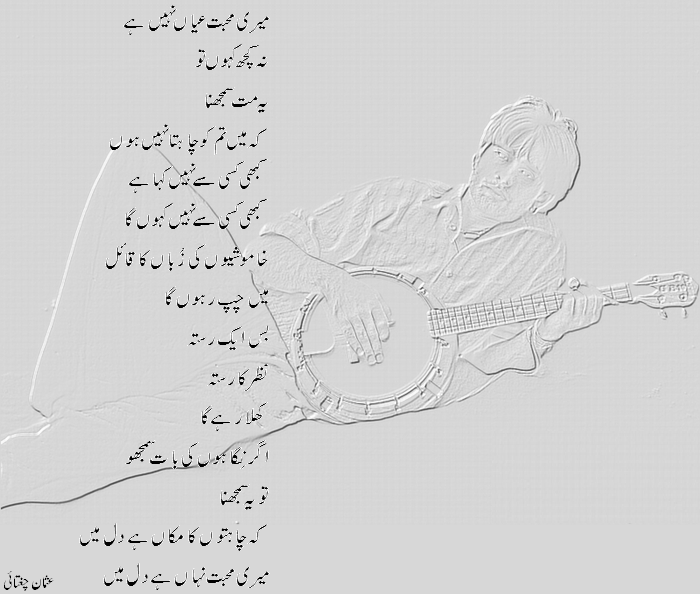 میری محبت عیاں نہیں ہے
نہ کچھ کہوں تو
یہ مت سمجھنا
کہ میں تم کو چاہتا نہیں ہوں
کبھی کسی سے نہیں کہا ہے
کبھی کسی سے نہیں کہوں گا
خاموشیوں کی زُباں کا قائل
میں چپ رہوں گا
بس ایک رستہ
نظر کا رستہ
کھلا رہے گا
اگر نگاہوں کی بات سمجھو
تو یہ سمجھنا
کہ چاہتوں کا مکاں ہے دل میں
میری محبت نہاں ہے دل میں
عثمان چغتائی